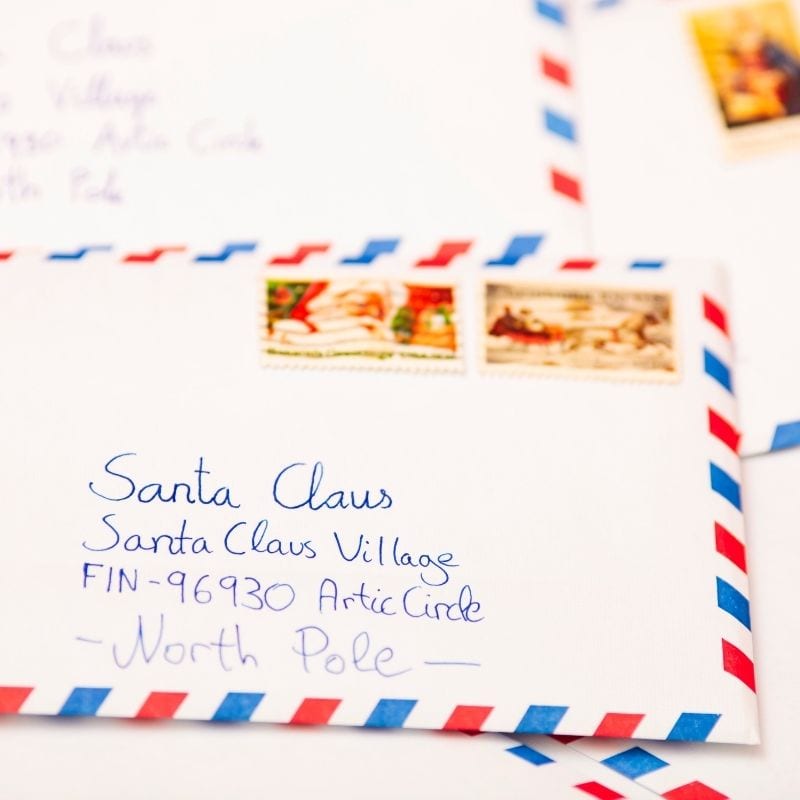 Claus
Village
Artic Circle
Pole
Santa Claus
Santa Claus Village
FIN-96930 Artic Circle
- North Pole -